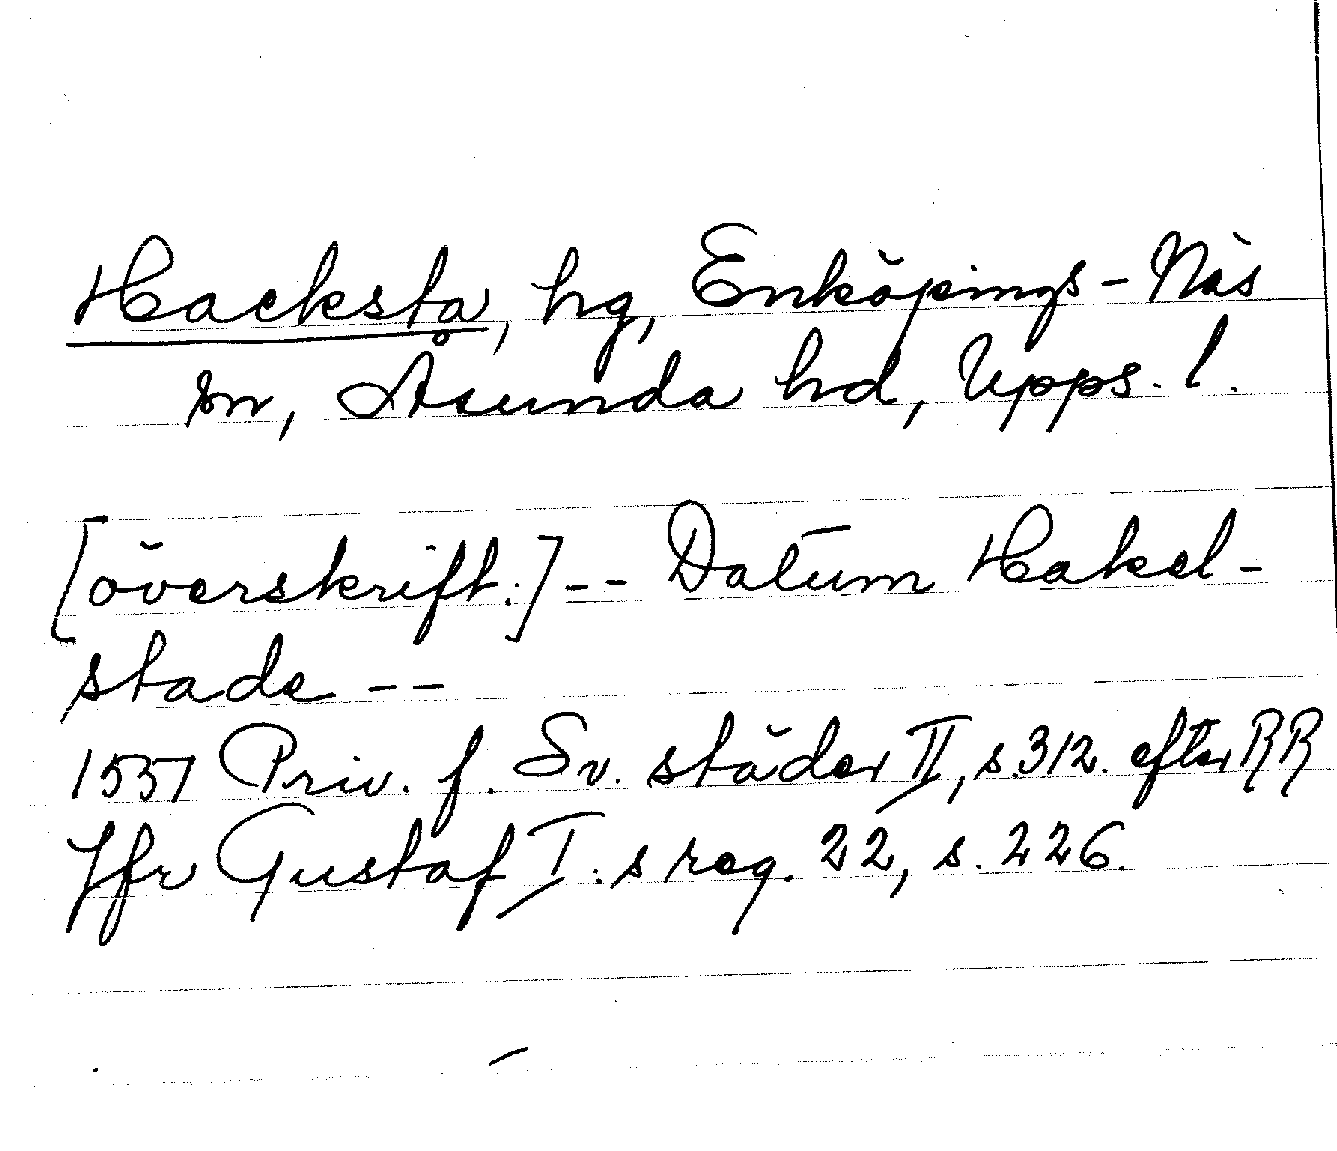 Hacksta, hg, Enköpings-Näs
sn, Åsunda hd, Upps. l.
[överskrift:] -- Datum Hakel-
stade --
1557 Priv. f. Sv. städer II, s. 312. efter RR
Jfr Gustaf I:s reg. 22, s. 226.